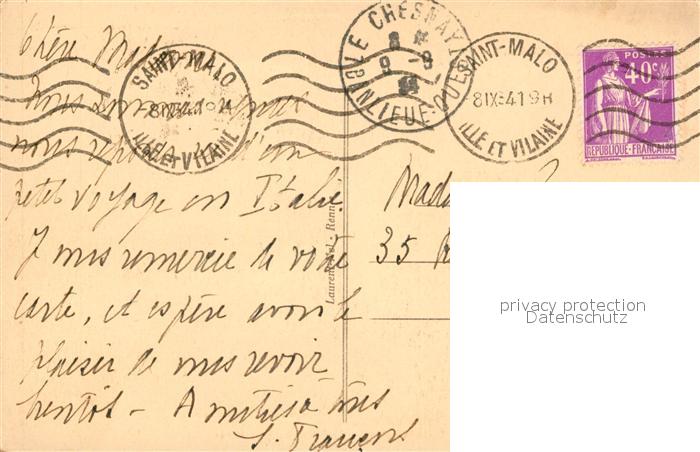 Chère Mad
SAINT-MALO
8 IX 41
ILLE ET VILAINE
LE CHESNAY
8
9 -9
41
BANLIEUE-OUEST
SAINT-MALO
8 IX 41 9H
ILLE ET VILAINE
POSTES
40c
REPUBLIQUE-FRANÇAISE
Nous sommes
nous reposer d'un
petit voyage en Italie.
Je vous remercie de votre
carte, et espère avoir le
plaisir de vous revoir
bientôt - Amitiés à tous
Mada
35 R
Laurent-Nel - Rennes
privacy protection
Datenschutz